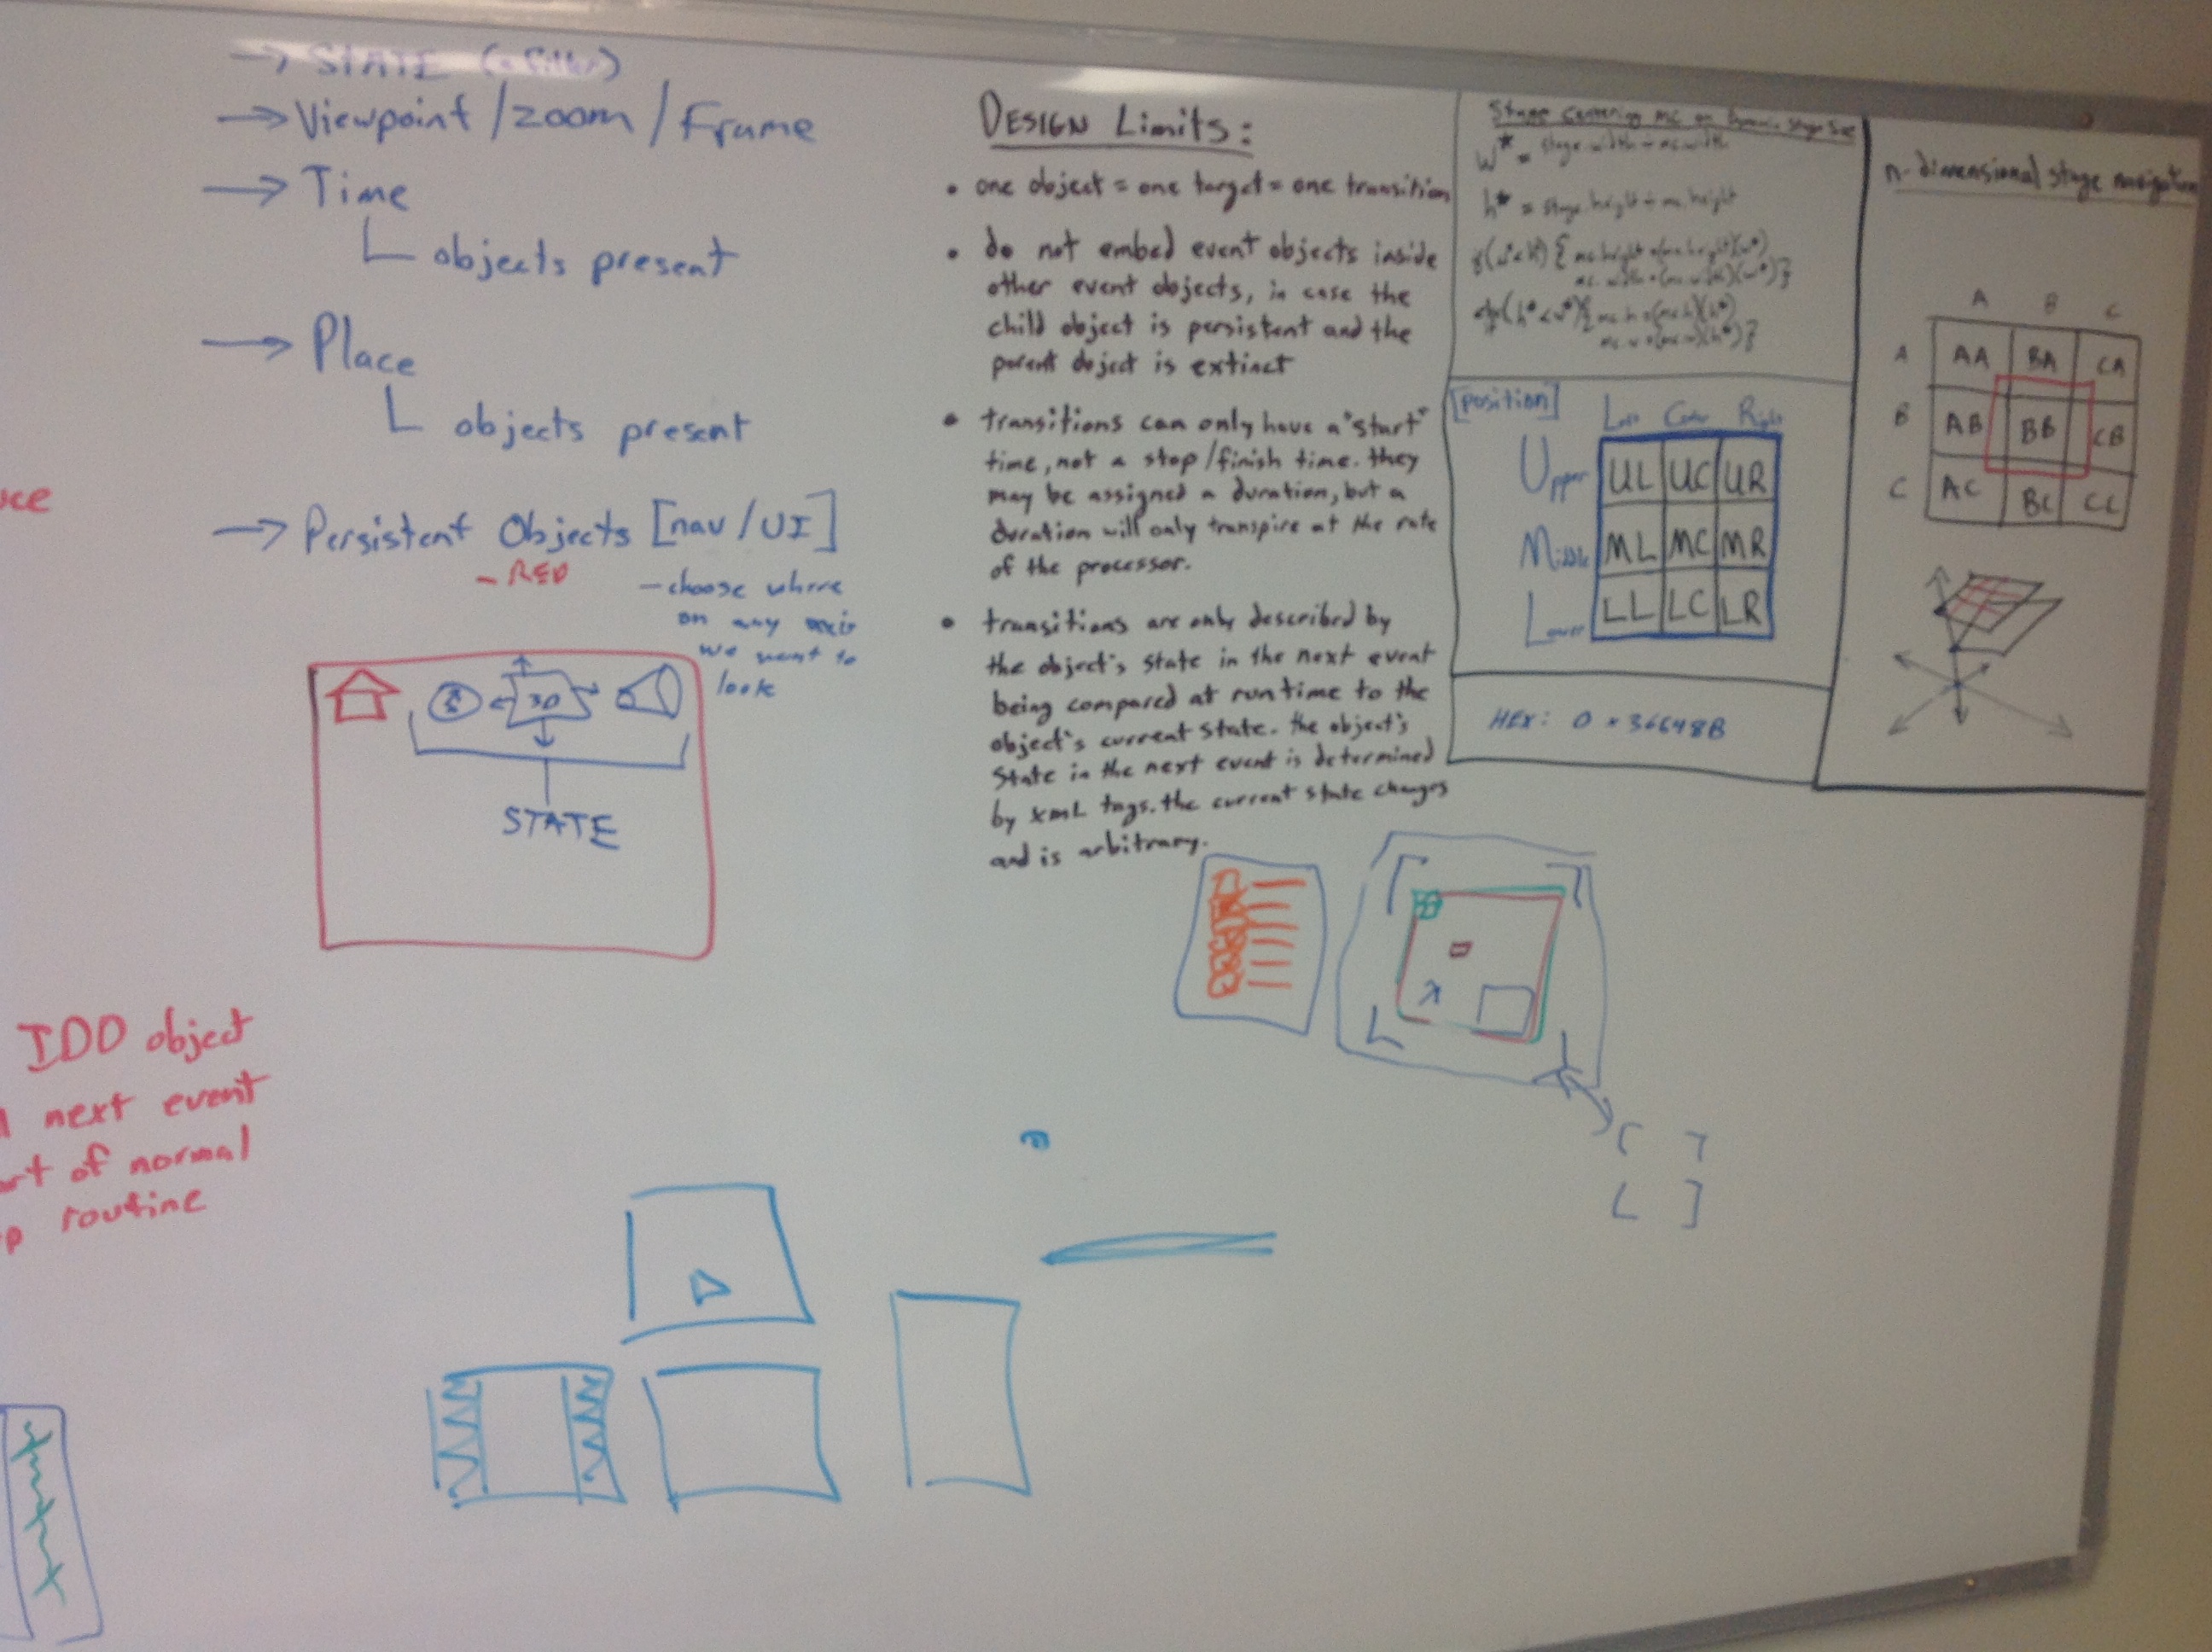 → STATE (a filter)
→ Viewpoint / zoom / Frame
→ Time
objects present
→ Place
objects present
→ Persistent Objects [nav / UI]
- RED
- choose where
on any axis
we want to
look
3D
STATE
IDD object
next event
of normal
routine
DESIGN Limits:
• one object = one target = one transition
• do not embed event objects inside
other event objects, in case the
child object is persistent and the
parent object is extinct
• transitions can only have a "start"
time, not a stop/finish time. they
may be assigned a duration, but a
duration will only transpire at the rate
of the processor.
• transitions are only described by
the object's state in the next event
being compared at runtime to the
object's current state. the object's
state in the next event is determined
by xmL tags. the current state changes
and is arbitrary.
Stage centering mc on Dynamic stage size
w* = stage.width ÷ mc.width
h* = stage.height ÷ mc.height
[position]
Left Center Right
Upper UL UC UR
Middle ML MC MR
Lower LL LC LR
HEX: 0x36648B
n-dimensional stage navigation
A B C
A AA BA CA
B AB BB CB
C AC BC CC